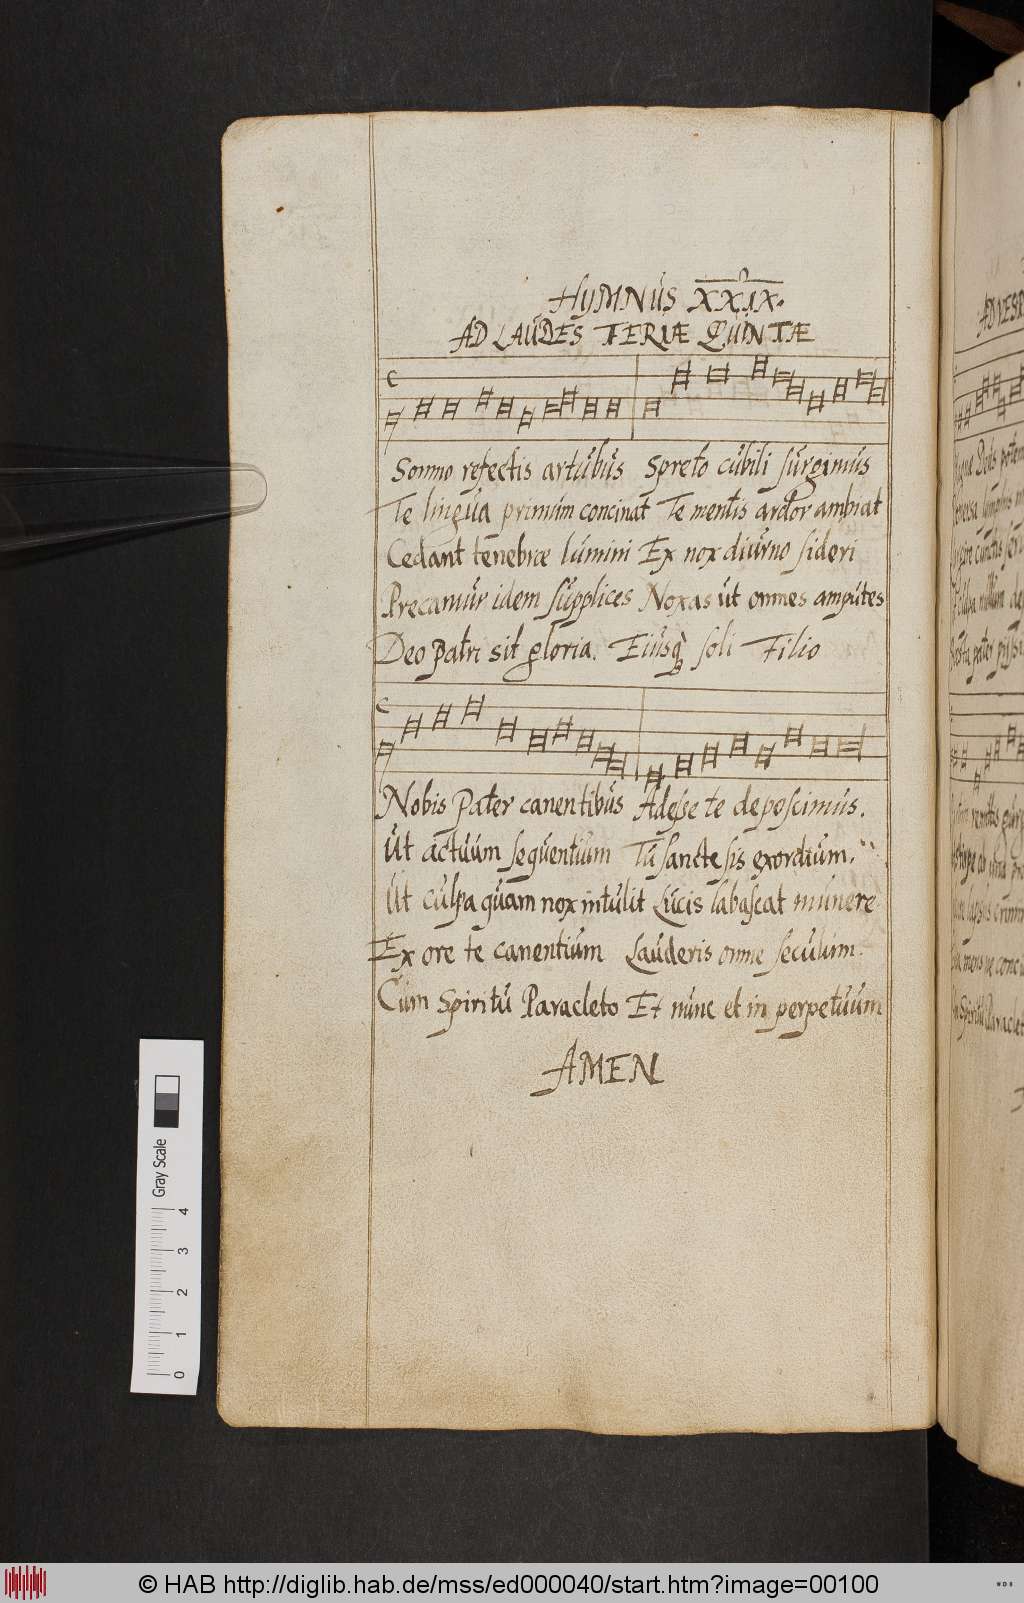 HYMNUS XXIX.
AD LAUDES FERIÆ QUINTÆ
Somno refectis artubus Spreto cubili surgimus
Te lingua primum concinat Te mentis ardor ambiat
Cedant tenebræ lumini Ex nox diurno sideri
Precamur idem supplices Noxas ut omnes amputes
Deo Patri sit gloria. Eiusq soli Filio
Nobis Pater canentibus Adesse te deposcimus.
Ut actuum sequentium Tu sancte sis exordium.
Ut culpa quam nox intulit Lucis labascat munere
Ex ore te canentium Lauderis omne seculum.
Cum Spiritu Paracleto Et nunc et in perpetuum
AMEN
Gray Scale
0 1 2 3 4
© HAB http://diglib.hab.de/mss/ed000040/start.htm?image=00100